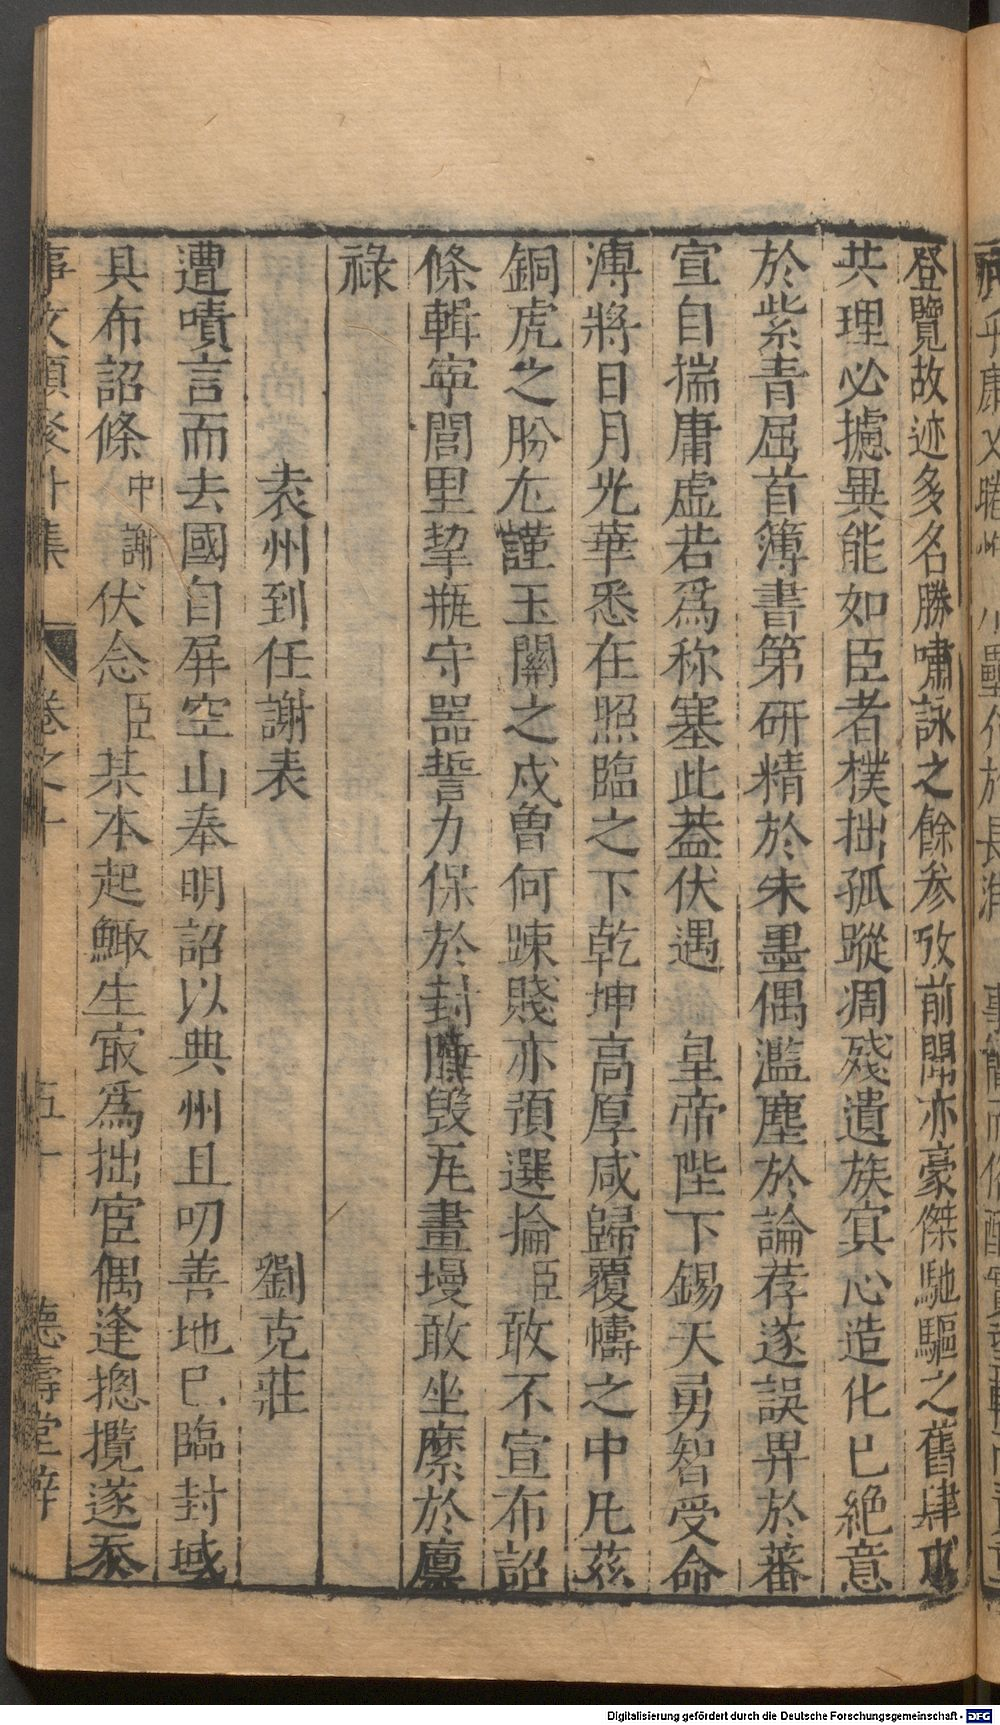 登覽故迹多名勝嘯詠之餘參攷前聞亦豪傑馳驅之舊肆求
共理必攄異能如臣者樸拙孤蹤凋殘遺族寘心造化已絕意
於紫青屈首簿書第研精於朱墨偶濫塵於論荐遂誤畀於蕃
宣自揣庸虛若爲称塞此葢伏遇 皇帝陛下錫天勇智受命
溥將日月光華悉在照臨之下乾坤高厚咸歸覆幬之中凡茲
銅虎之肦尢謹玉關之戍曾何踈賤亦預選掄臣敢不宣布詔
條輯寧閭里挈瓶守器誓力保於封陲毁瓦畫墁敢坐縻於廪
祿
袁州到任謝表 劉克莊
遭嘖言而去國自屏空山奉明詔以典州且叨善地已臨封域
具布詔條中謝伏念臣某本起鯫生㝡爲拙宦偶逢摠攬遂忝
事文類聚外集 卷之十 五十 德壽堂梓
Digitalisierung gefördert durch die Deutsche Forschungsgemeinschaft - DFG